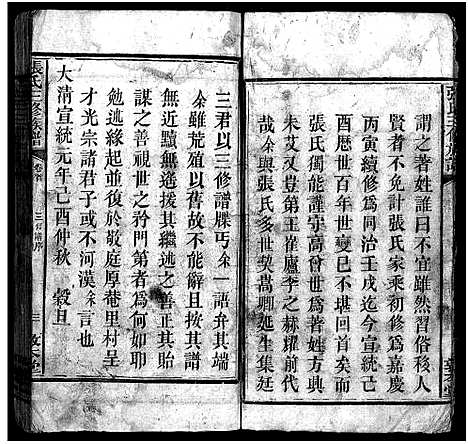 謂之著姓誰曰不宜雖然習俗移人
賢者不免計張氏家乘初修爲嘉慶
丙寅續修爲同治壬戌迄今宣統己
酉歷世百年世變已不堪回首矣而
張氏獨能謹守高曾衣冠儒雅方興
未艾又豈第王崔廬李之赫耀前代
哉余與張氏多世契
三君以三修譜牒丐余一語弁其端
余雖荒殖以舊故不能辭且按其譜
無近黷無遠援其繼述之善正其貽
謀之善視世之矜門第者爲何如耶
勉述畧並復於敬庭厚菴里村呈
才光宗諸君子或不河漢余言也
大清宣統元年己酉仲秋 穀旦
張氏三修族譜
卷首
三修譜序
三